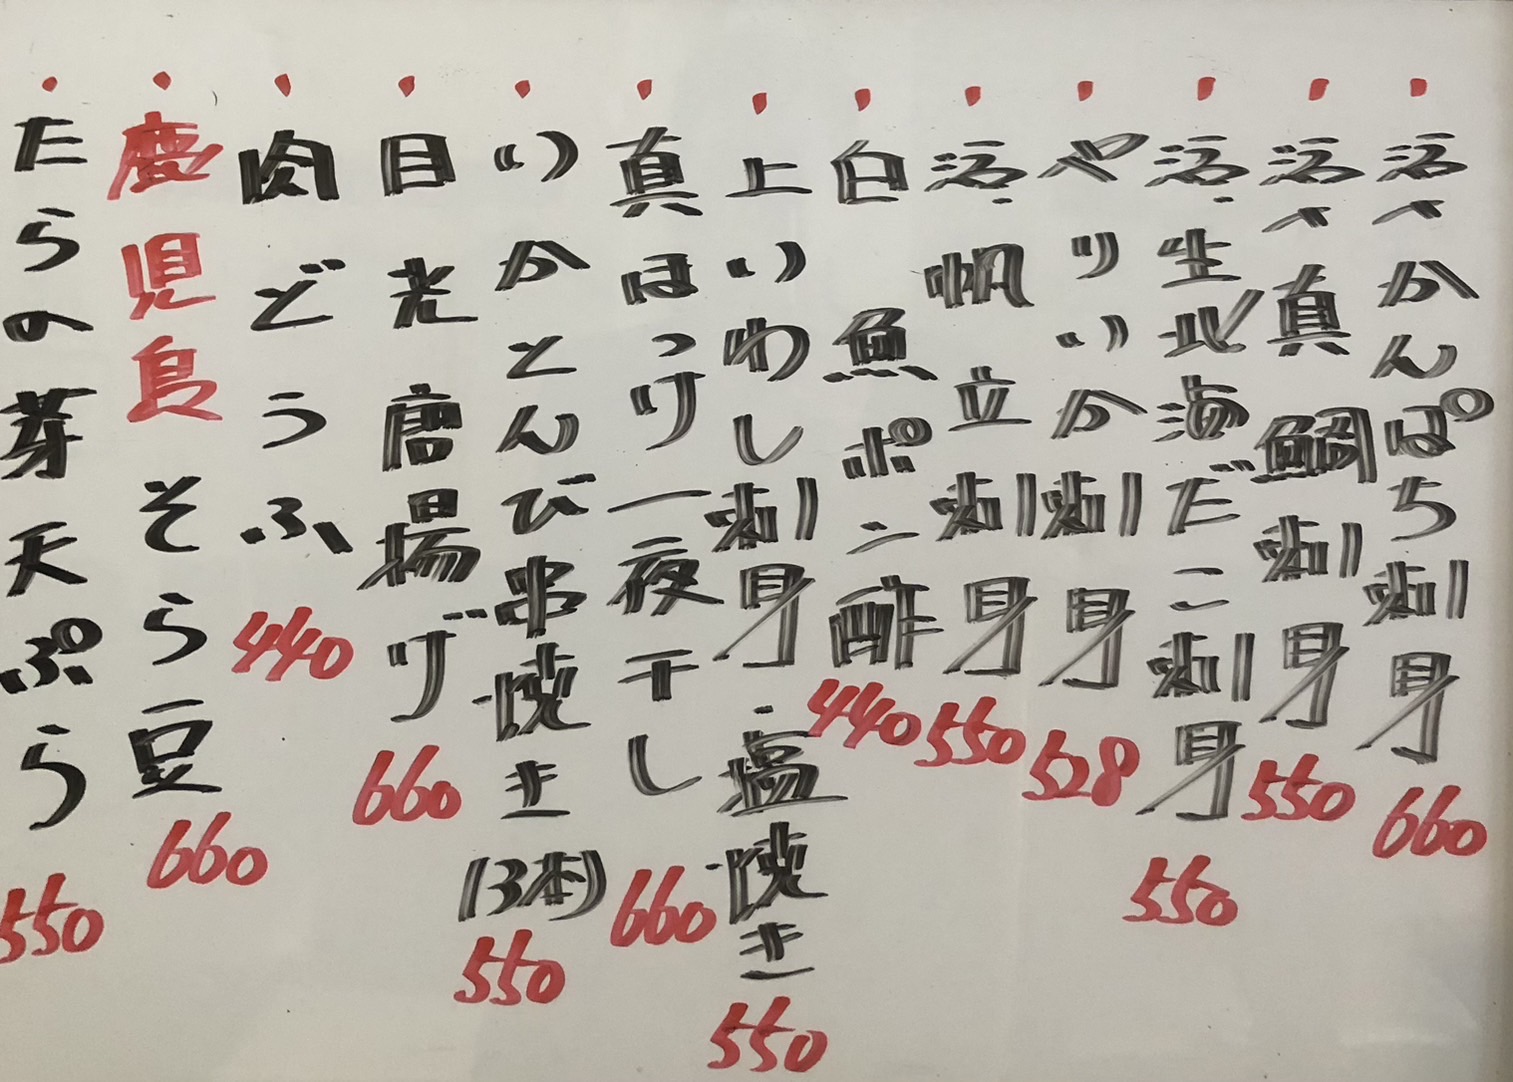 ・活〆かんぱち刺身 660
・活〆真鯛刺身 550
・活・生北海だこ刺身 550
・やりいか刺身 528
・活・帆立刺身 550
・白魚ポン酢 440
・上いわし刺身・塩焼き 550
・真ほっけ一夜干し 660
・いかとんび串焼き(3本) 550
・目光唐揚げ 660
・肉どうふ 440
・鹿児島そら豆 660
・たらの芽天ぷら 550